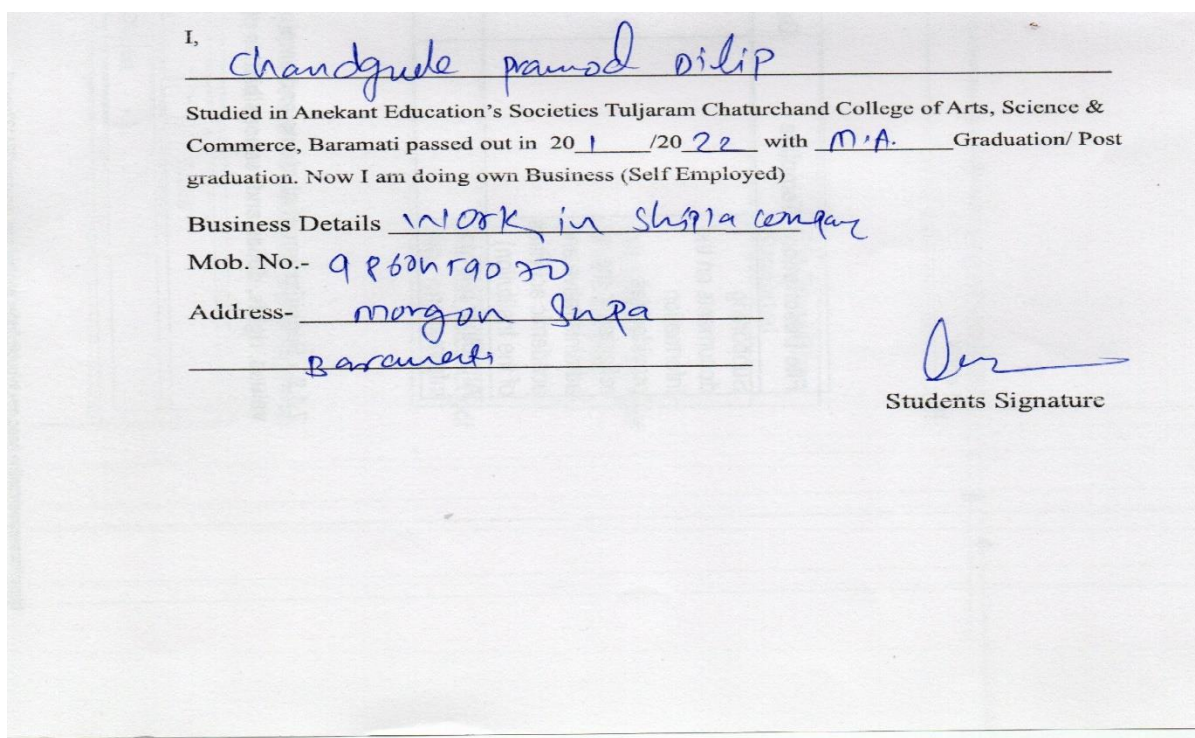 I,
Chandgude pramod Dilip
Studied in Anekant Education's Societies Tuljaram Chaturchand College of Arts, Science &
Commerce, Baramati passed out in 20 1 /20 22 with M.A. Graduation/ Post
graduation. Now I am doing own Business (Self Employed)
Business Details Work in company
Mob. No.-
Address- morgon Supa
Baramati
Students Signature